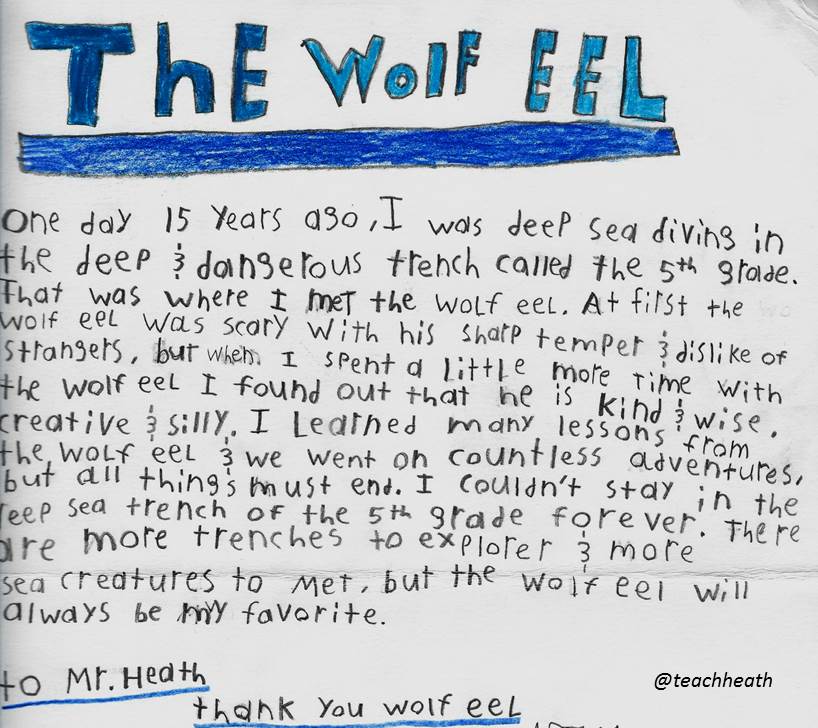 The Wolf EEL
One day 15 Years ago, I was deep sea diving in
the deep & dangerous trench called the 5th grade.
That was where I met the wolf eel. At first the
wolf eel was scary with his sharp temper & dislike of
strangers, but when I spent a little more time with
the wolf eel I found out that he is kind & wise,
creative & silly. I learned many lessons from
the wolf eel & we went on countless adventures,
but all thing's must end. I couldn't stay in the
eep sea trench of the 5th grade forever. There
are more trenches to explorer & more
sea creatures to met, but the wolf eel will
always be my favorite.
to Mr. Heath
@teachheath
thank you wolf eel